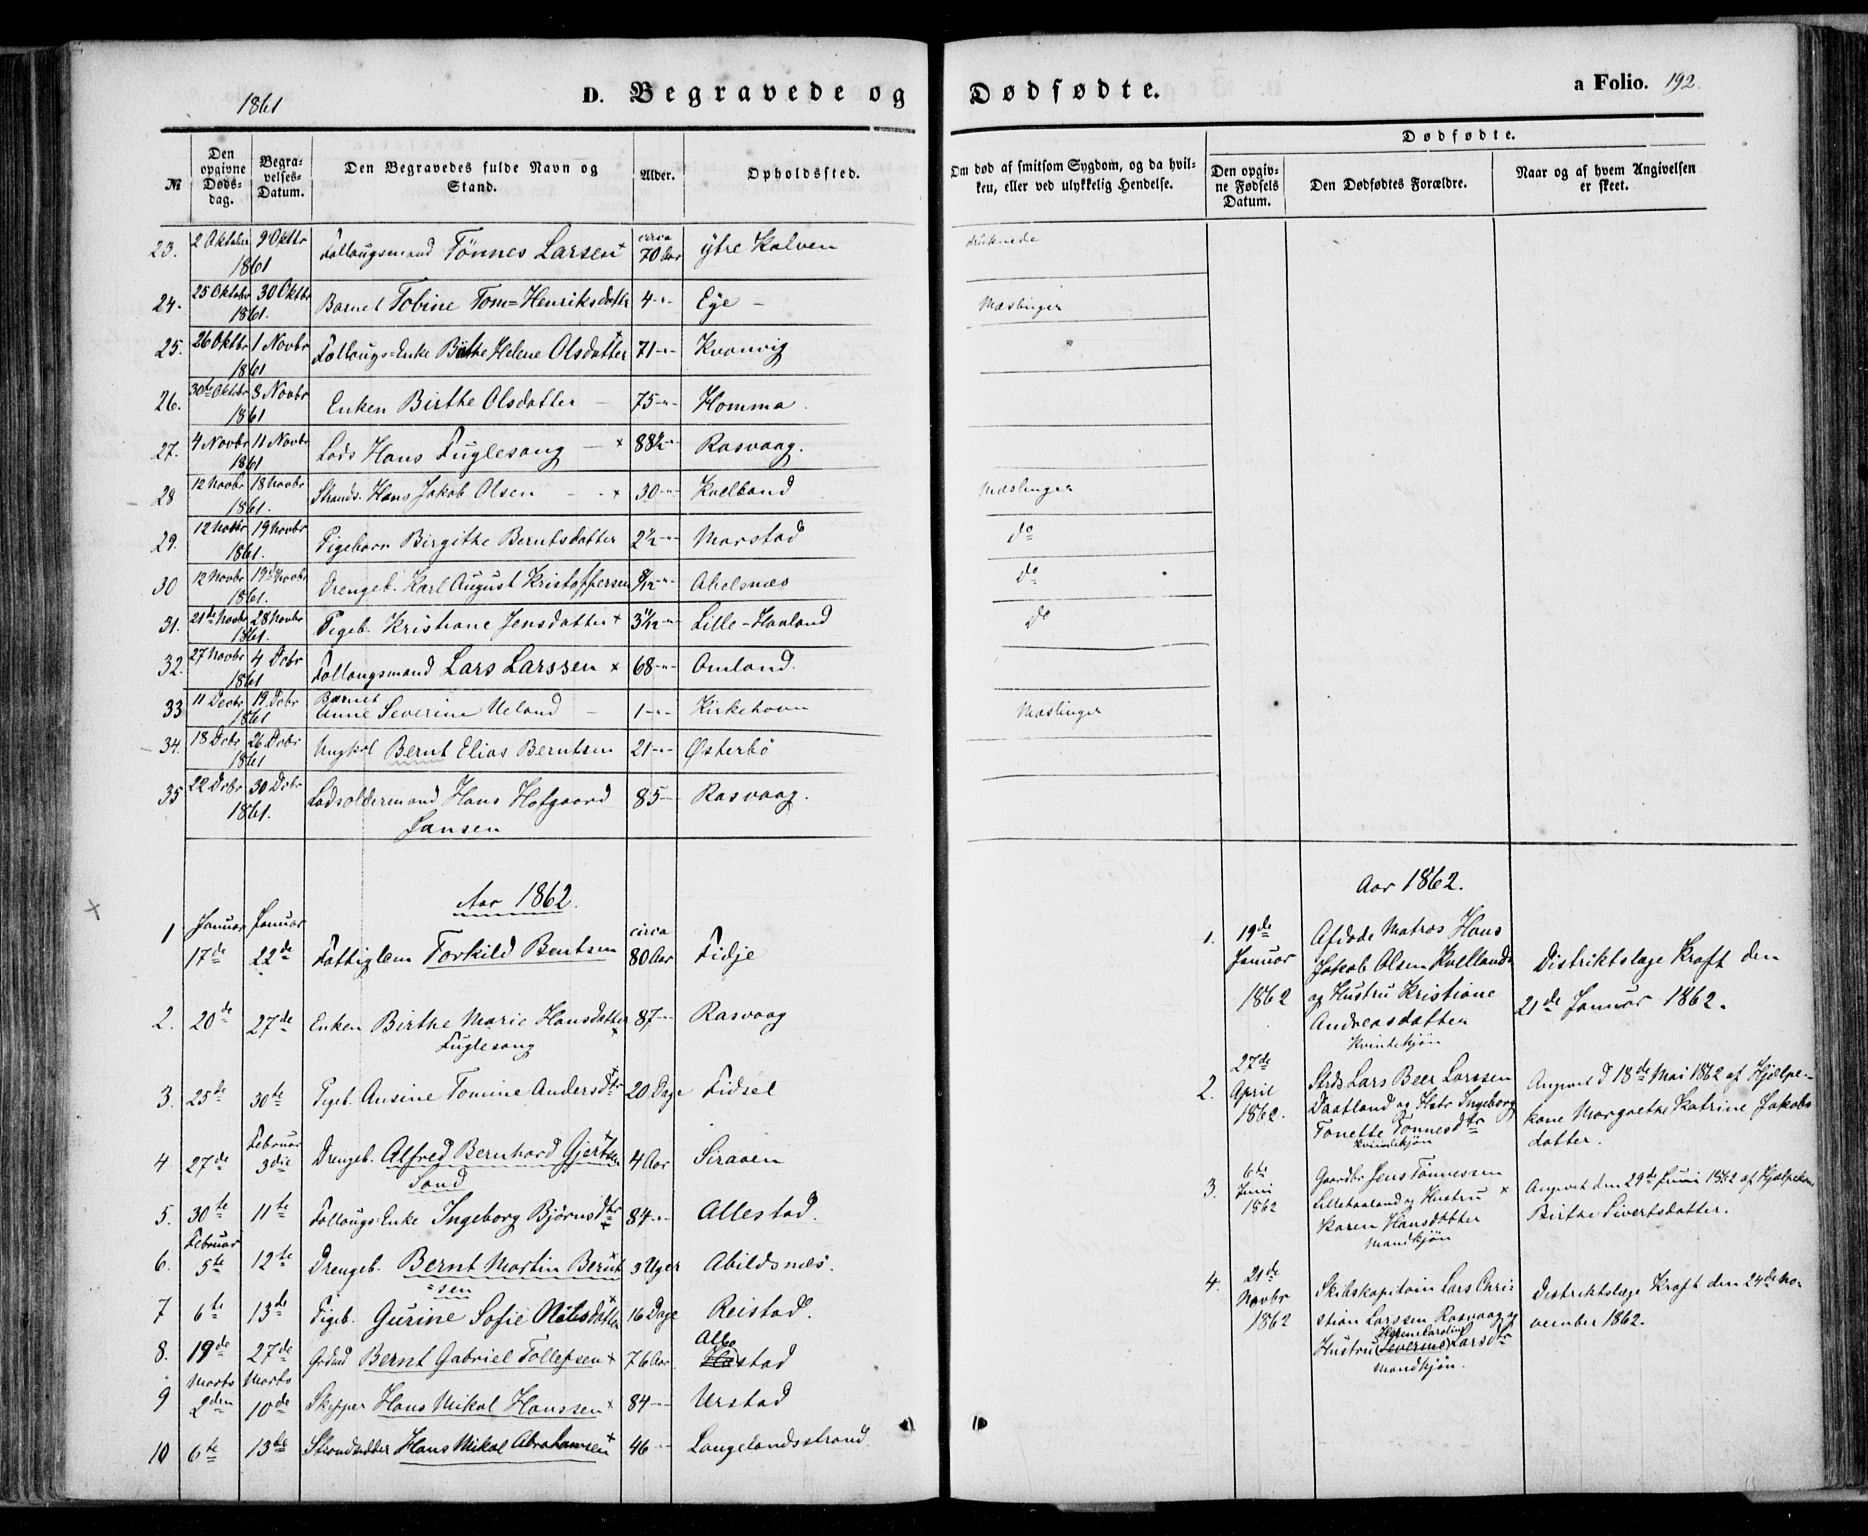 1861
D. Begravede og
№
Den opgivne Døds-dag.
Begra-velses-Datum.
Den Begravedes fulde Navn og Stand.
Alder.
Opholdssted.
23. 2 Oktober 9 Oktbr 1861 Follaugsmand Tönnes Larsen + circa 70 Aar ytre Kalven
24. 25 Oktober 30 Oktbr 1861. Barnet Tobine Tom=Henriksdatter 4 -"- Eye -
25. 26 Oktbr 1 Novbr 1861 Follaugs=Enke Birthe Helene Olsdatter + 71 -"- Kvanvig
26. 30te Oktbr 8 Novbr 1861 Enken Birthe Olsdatter - 75 -"- Homma.
27. 4 Novbr 11 Novbr 1861 Lods Hans Fuglesang - + 88½ -"- Rasvaag.
28 12 Novbr 18 Novbr 1861. Strands. Hans Jakob Olsen - - + 30 -"- Kvelland
29. 12 Novbr 19 Novbr 1861. Pigebarn Birgithe Berntsdatter 2½ -"- Marstad
30 12 Novbr 19de Novbr 1861. Drengeb. Karl August Kristoffersen 8/12 -"- Abelsnæs
31. 21de Novbr 28 Novbr 1861. Pigeb. Kristiane Jensdatter + 3 1/12 -"- Lille-Havland
32. 27 Novbr 4 Dcbr 1861 Follaugsmand Lars Larssen + 68 -"- Omland.
33 11 Decbr 19 Dcbr 1861 Barnet Anne Severine Ueland - 1 -"- Kirkehavn
34. 18 Dcbr 26 Dcbr 1861 Ungkal Bernt Elias Berntsen 21 -"- Østerbö
35 22 Dcbr 30 Dcbr 1861. Lodsoldermand Hans Hofgaard 85 -"- Rasvaag.
Jansen
Aar 1862.
1 Januar 17de Januar 22de Fattiglem Torkild Bentsen circa 80 Aar Fidje
2. 20de 27de Enken Birthe Marie Hansdatter + 87 -"- Rasvaag
Fuglesang
3. 25de 30te Pigeb. Ansine Tomine Andersdtr 20 Dage Fidsel
4 27de Februar 3die Drengeb. Alfred Bernhard Gjertsen 4 Aar Siraaen
Sand
5. 30te 11te Follaugs-Enke Ingeborg Björnsdtr + 84 -"- Allestad.
6. Februar 5te 12te Drengeb. Bernt Martin Bernt 3 Uger Abildsnæs.
=sen
7 6te 13de Pigeb. Gurine Sofie Nilsdatter 16 Dage Reistad.
8. 19de 27de Grdmd Bernt Gabriel Tollefsen + 76 Aar Allestad
9 Marts 2den Marts 10de Skipper Hans Mikal Hanssen + 84 -"- Urstad
10 6te 13de Strandsidder Hans Mikal Abrahamsen + 46 -"- Langelandsstrand
Dødfødte.
a Folio. 192.
Om død af smitsom Sygdom, og da hvil-ken, eller ved ulykkelig Hendelse.
Dødfødte.
Den opgiv-ne Fødsels Datum.
Den Dødfødtes Forældre.
Naar og af hvem Angivelsen er skeet.
druknede
Mæslinger
Mæslinger
do
do
do
Mæslinger
Aar 1862.
1. 19de Januar 1862
Afdøde Matros Hans
Jakob Olsen Kvelland
og Hustru Kristiane
Andreasdatter
Kvindekjøn
Distriktslæge Kraft den
21de Januar 1862.
2. 27de April 1862.
Strds Lars Beer Larssen
Daatland og Hstr Ingeborg
Tonette Tönnesdtr
Kvindekjøn
Angivet d 18de Mai 1862 af Hjelpe-
kone Margrethe Katrine Jakobs
datter.
3. 6te Juni 1862
Gaardbr Jens Tönnessen
Lillehavland og Hustru +
Karen Hansdatter
Mandkjøn
Angivet den 29de Juni 1862 af Hjelpekone
Birthe Sivertsdatter.
4. 21de Novbr 1862
Skibskapitain Lars Chris
stian Larssen Rasvaag og
Helene Caroline
Hustru (Severine) Larsdtr
Mandkjøn.
Distriktslæge Kraft den 24de No-
vember 1862.